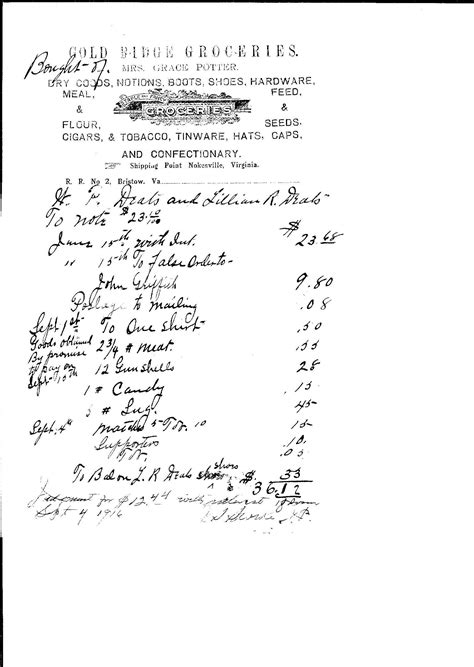 GOLD RIDGE GROCERIES.
Bought of.
MRS. GRACE POTTER.
DRY GOODS, NOTIONS, BOOTS, SHOES, HARDWARE,
MEAL, FEED,
& GROCERIES &
FLOUR, SEEDS,
CIGARS, & TOBACCO, TINWARE, HATS, CAPS,
AND CONFECTIONARY.
Shipping Point Nokesville, Virginia.
R. R. No 2, Bristow. Va
H. F. Deats and Lillian R. Deats
To note $23.
June 15th with Int. $23.68
" 15th To False Order to-
John Griffith 9.80
Postage to mailing .08
Sept 1st To One Shirt .50
Goods obtained 2 3/4 # meat. .55
By promise
to pay on 12 Gunshells 28
Sept 10th
1 # Candy .15
5 # Sug. 45
Sept. 4th Matches 5 Tob. 10 15
Supporters .10.
Tob. .05
To Bal on L. R. Deats shoes $. 33
36.12
Judgment for $12.44 with interest from
Sept 4 1916